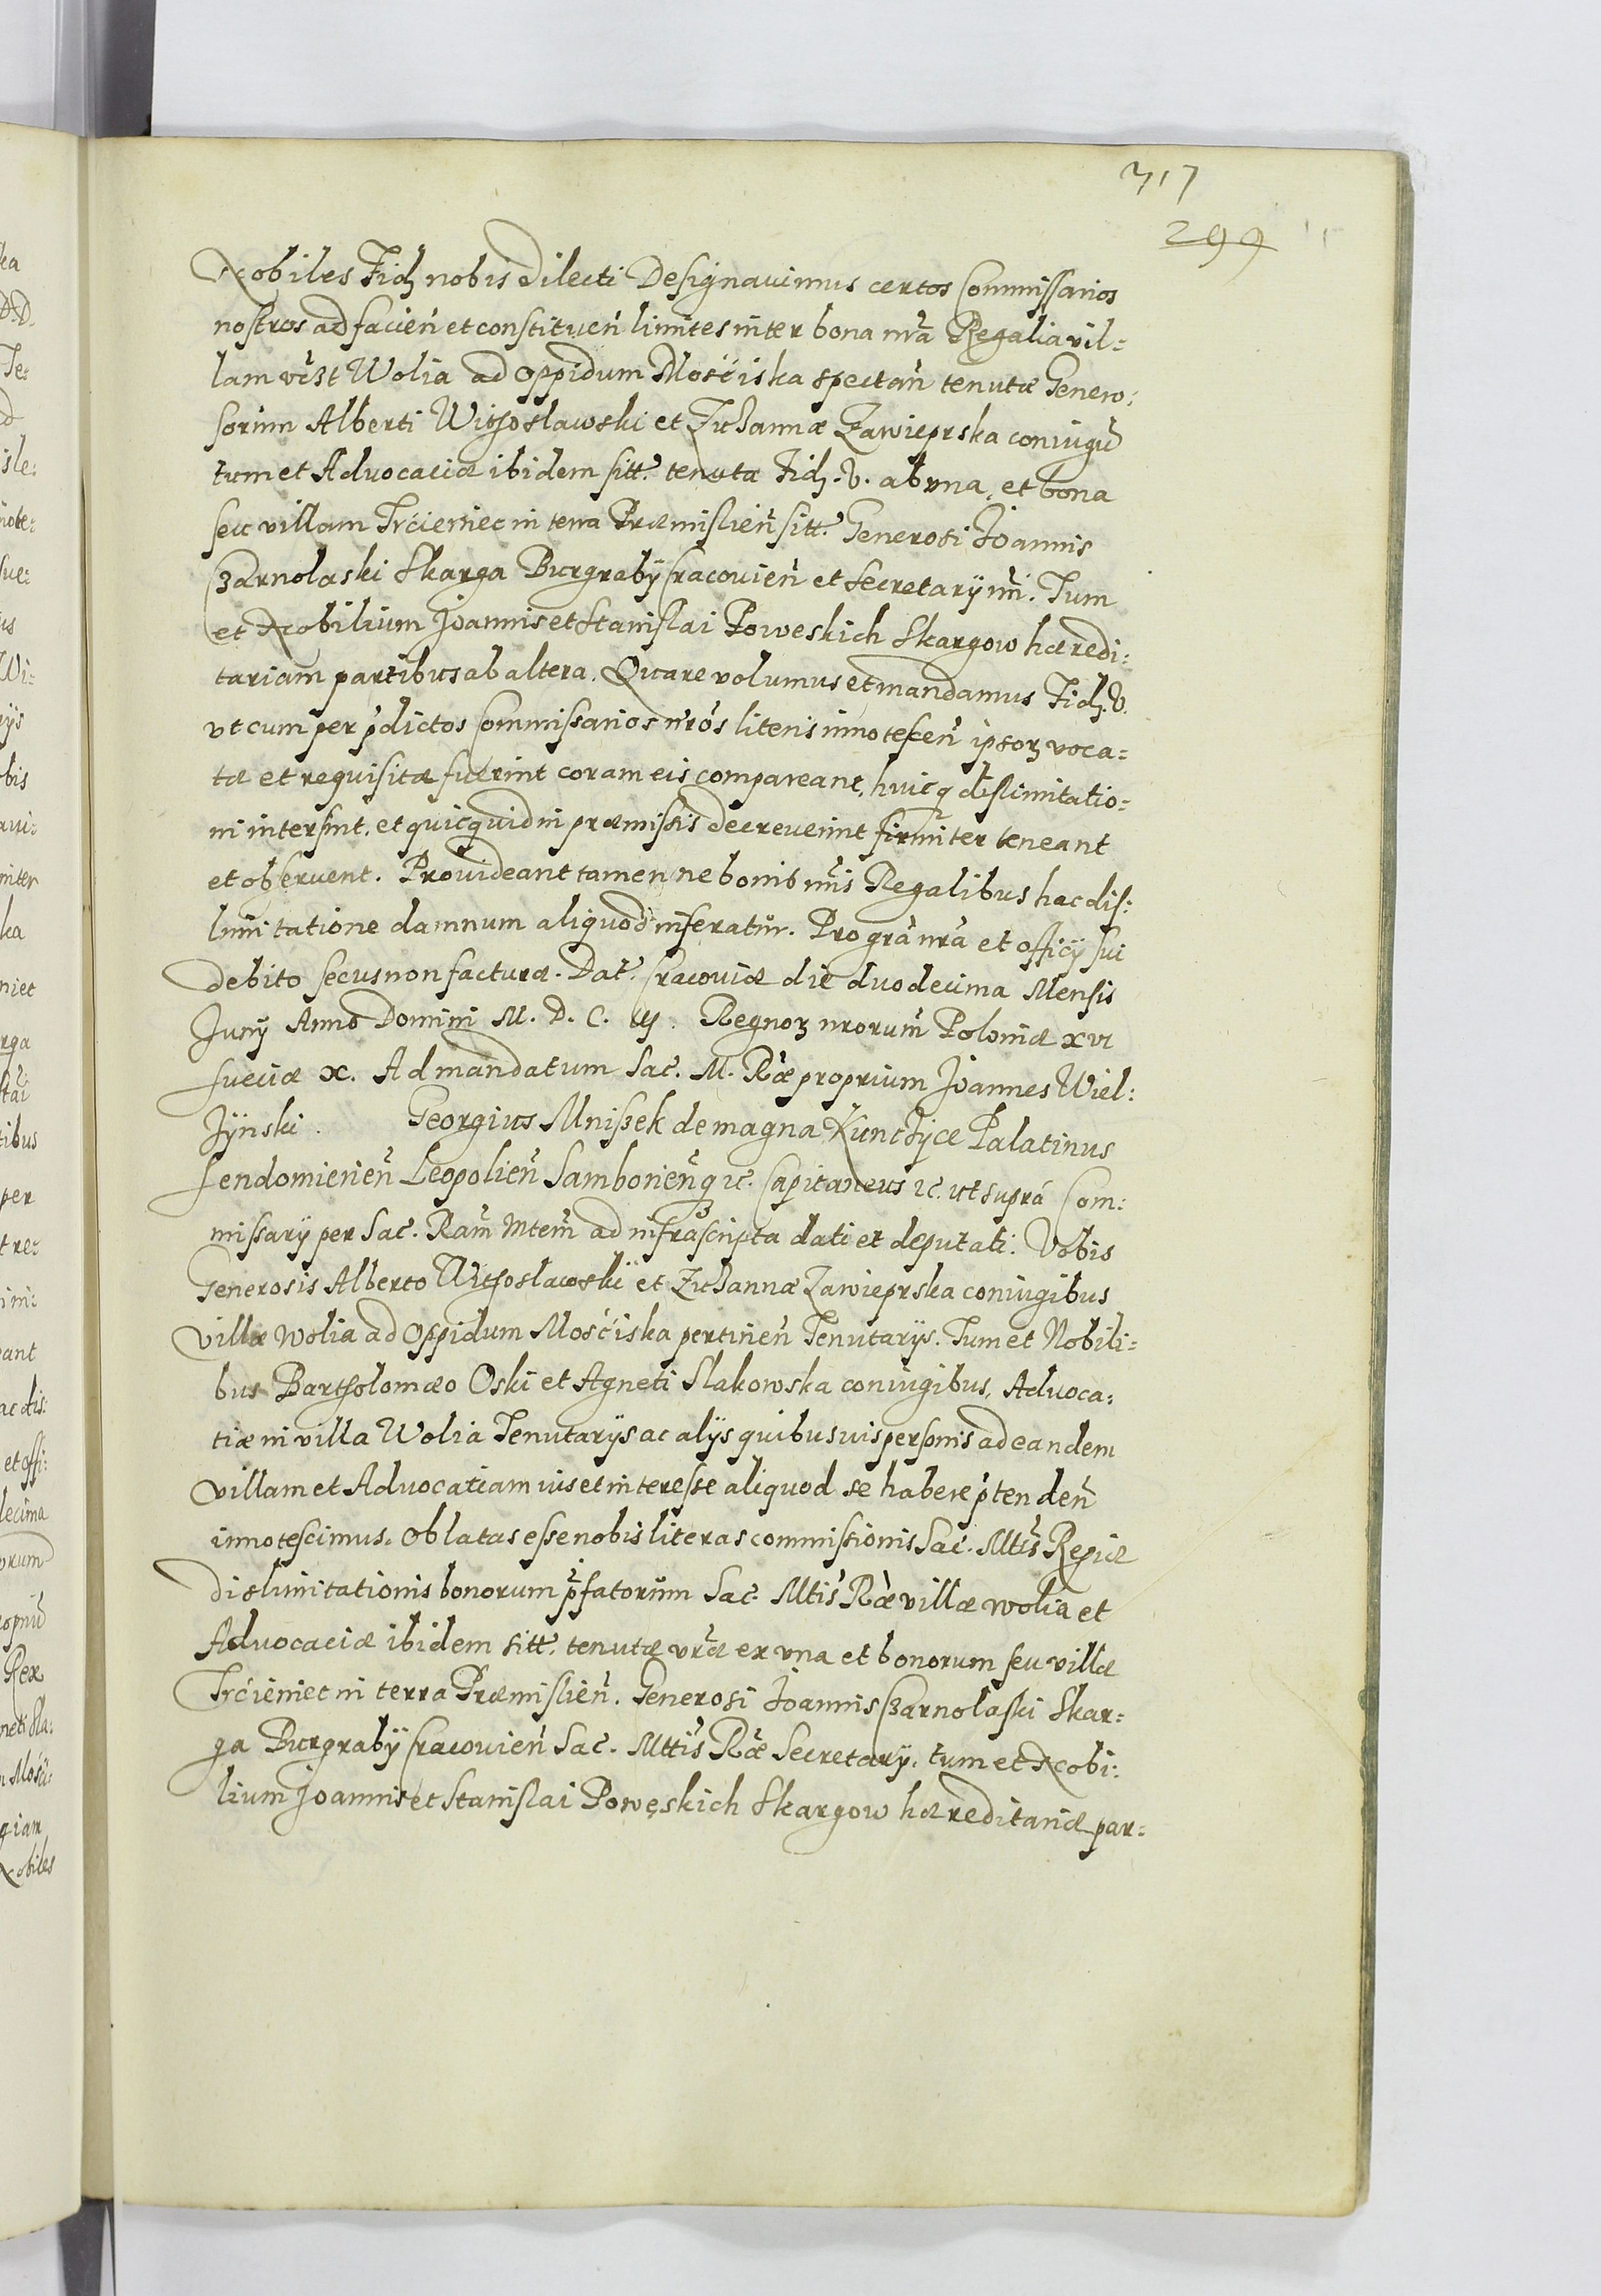 317
299
Nobiles Fidꝫ nobis dilecti Designauimus certos Commissarios
nostros ad facień et constitueń limites inter bona nr̃a Regalia vil=
lam vc̃ꝫt Wolia ad oppidum Mośćiska spectań tenutæ Genero:
sorum Alberti Withoslawski et Zuzannæ Zawieprska coniugũ
tum et Aduocaciæ ibidem sitt. tenuta Fidꝫ. V. ab vna, et bona
seu villam Trćieniec in terra Præmislień sitt. Generosi Joannis
Czarnolaski Skarga Burgrabÿ Cracouień et Secretarÿ nr̃i. Tum
et Nobilium Joannis et Stanislai Poweskich Skargow hæredi:
tariam partibus ab altera. Quare volumus et mandamus Fidꝫ. V.
vt cum per p̃dictos Commissarios nr̃os literis innotesceń ipsoꝝ voca=
tæ et requisitæ fuerint coram eis compareant, huicq dislimitatio=
ni intersint, et quicquid in præmissis decreuerint firmiter teneant
et obseruent. Prouideant tamen ne bonis nr̃is Regalibus hac dis:
limitatione damnum aliquod inferatur. Pro grã nrã et officÿ sui
debito secus non facturæ. Dat. Cracouiæ die duodecima Mensis
Junÿ Anno Domini M. D. C. iij. Regnoꝝ nrorum Poloniæ xvi
Sueciæ x. Ad mandatum Sac. M. Ræ proprium Joannes Wiel:
zÿnski. Georgius Mnissek de magna Kunczÿce Palatinus
Sendomirień Leopolień Samborieńq ꝛc. Capitaneus ꝛc. vt supra Com:
missarÿ per Sac. Ram Mtem ad infrascripta dati et deputati. Vobis
Generosis Alberto Withoslawskÿ et Zuzannæ Zawieprska coniugibus
villæ Wolia ad oppidum Mośćiska pertineń Tenutarÿs. Tum et Nobili=
bus Bartholomæo Oski et Agneti Slakowska coniugibus, Aduoca:
tiæ in villa Wolia Tenutarÿs ac alÿs quibusuis personis ad eandem
villam et Aduocatiam ius et interesse aliquod se habere p̃tendeń
innotescimus. Oblatas esse nobis literas commissionis Sac. Mtis Regiæ
dislimitationis bonorum p̃fatorum Sac. Mtis Ræ villæ Wolia et
Aduocaciæ ibidem sitt. tenutæ vr̃æ ex vna et bonorum seu villæ
Trćieniec in terra Præmislień. Generosi Joannis Czarnolaski Skar=
ga Burgrabÿ Cracouień Sac. Mttis Ræ Secretarÿ. tum et Nobi:
lium Joannis et Stanislai Powęskich Skargow hæreditariæ par=